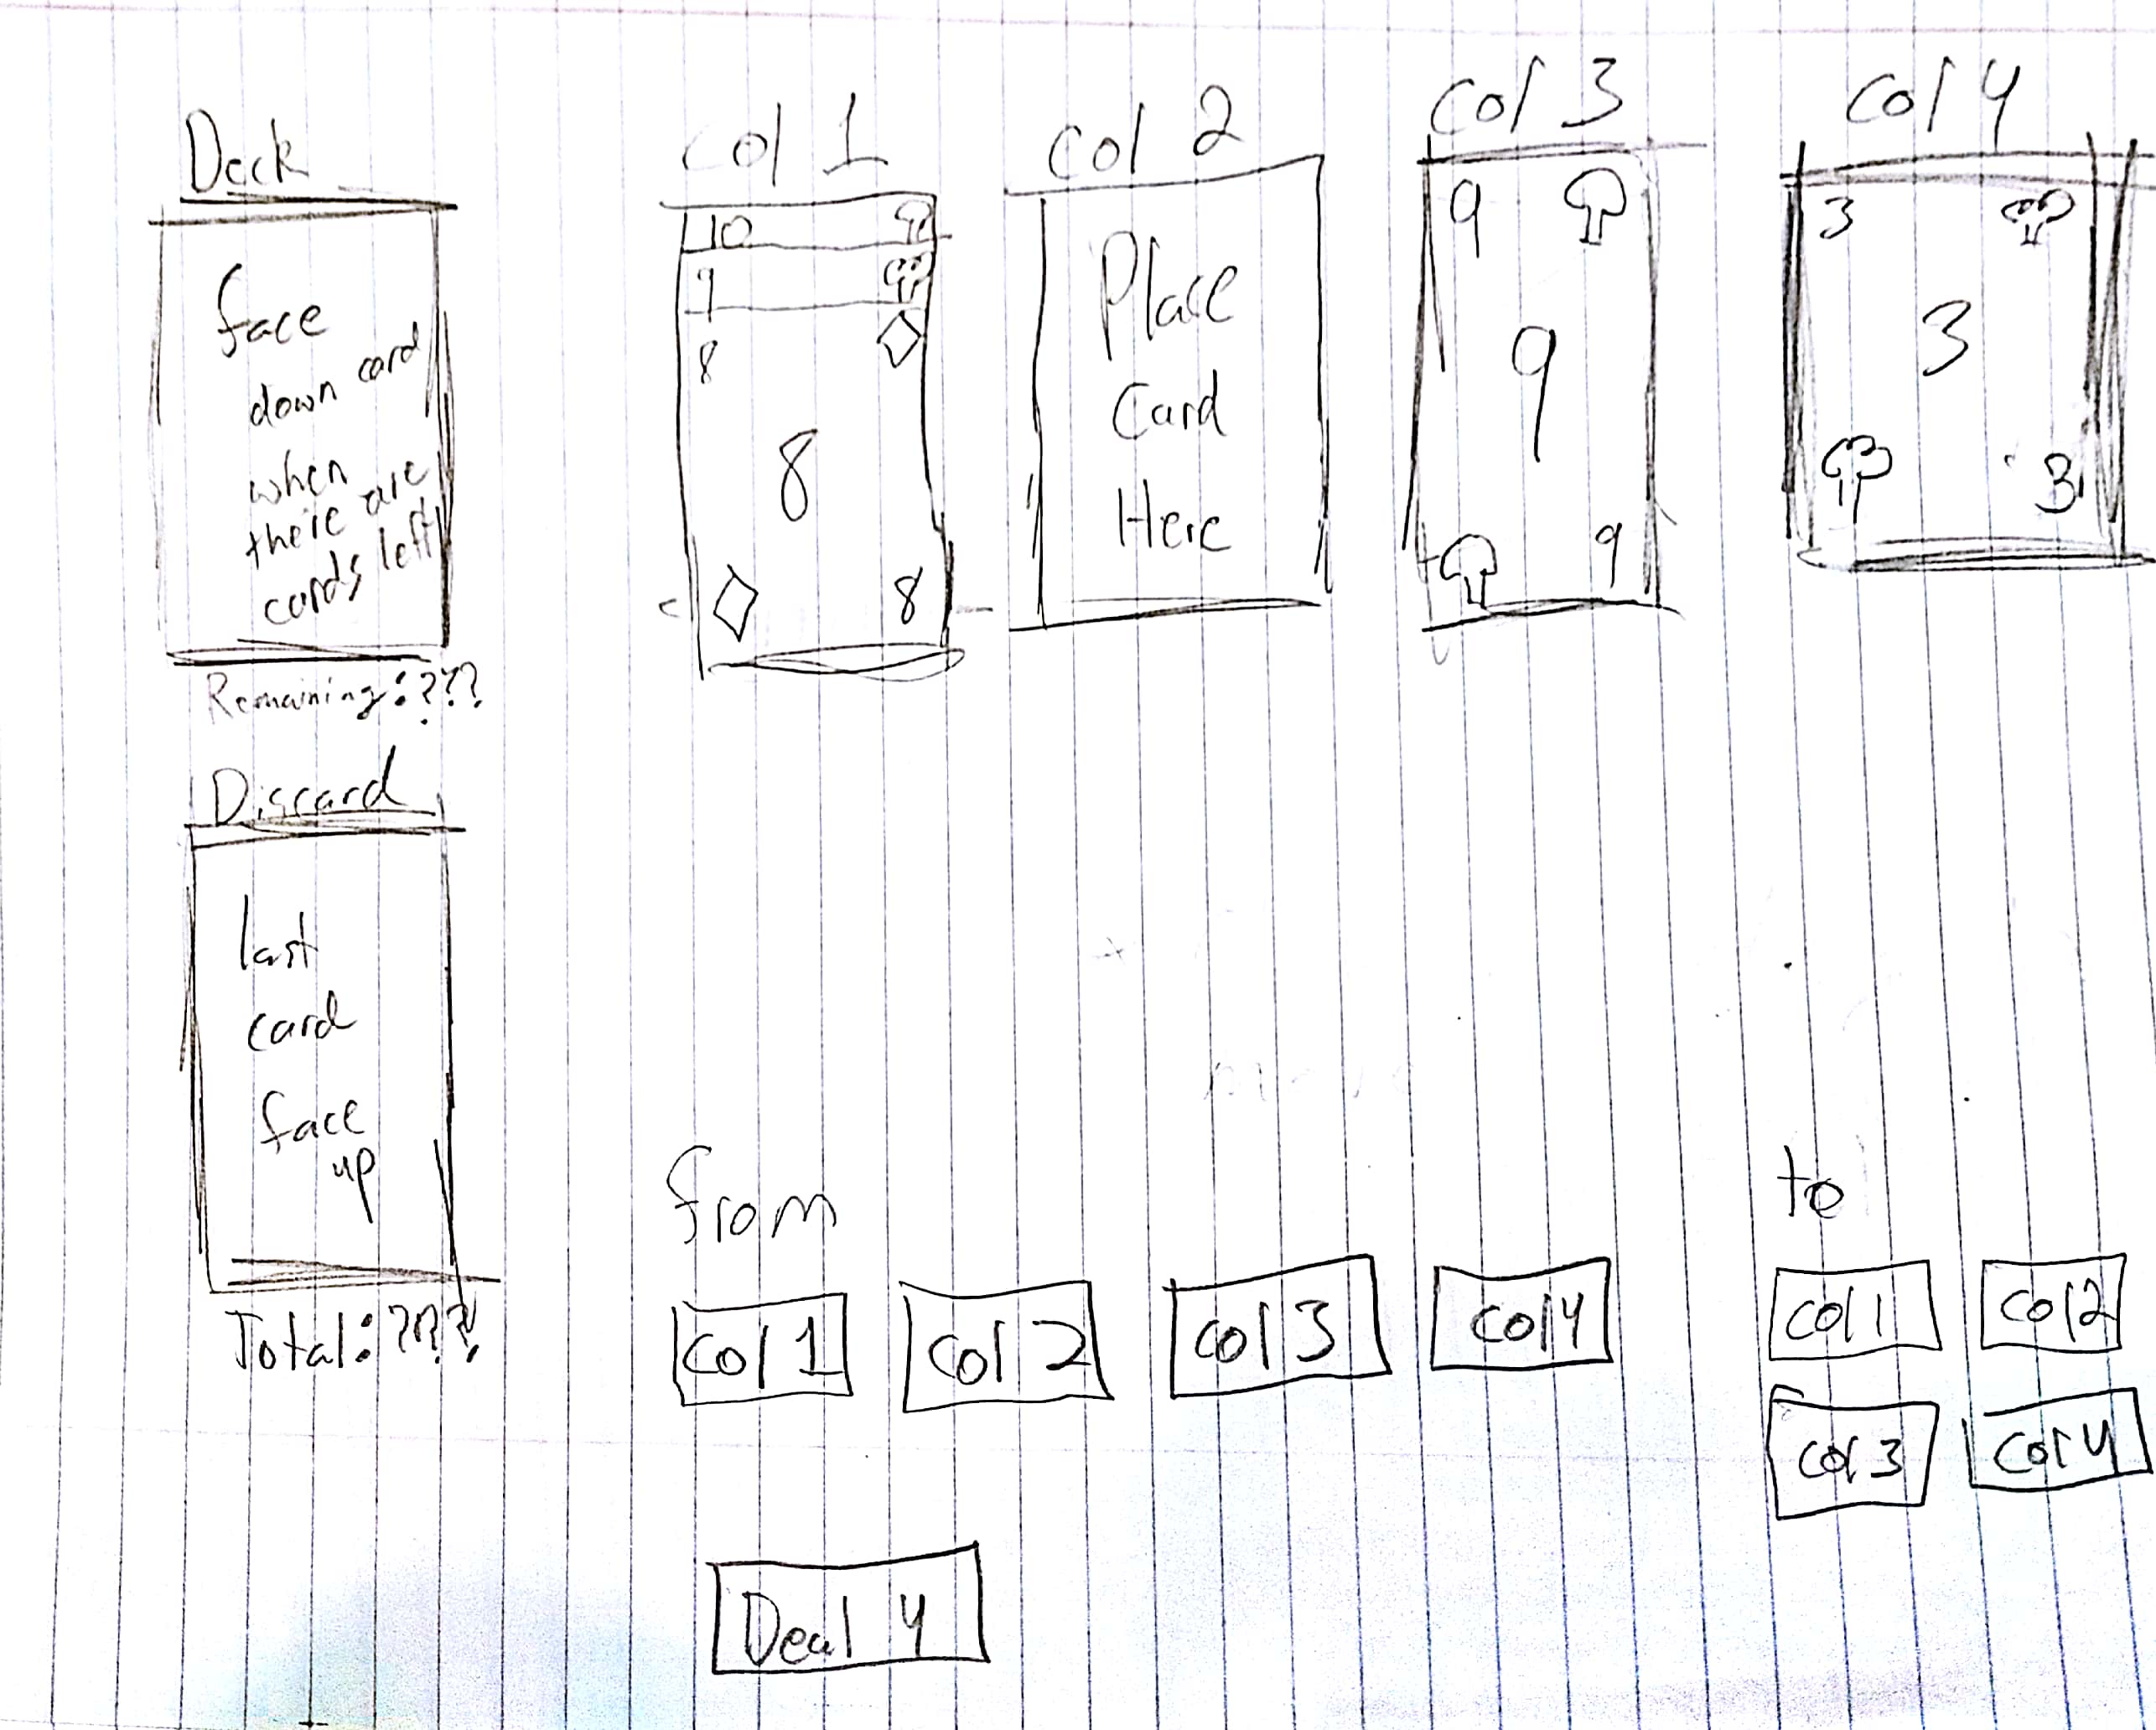 Deck
face
down card
when
there are
cards left
Remaining: ???
Discard
last
card
face
up
Total: ???
Col 1
10
9
8
8
8
Col 2
Place
Card
Here
Col 3
9
9
9
Col 4
3
3
3
from
Col 1
Col 2
Col 3
Col 4
to
Col 1
Col 2
Col 3
Col 4
Deal 4